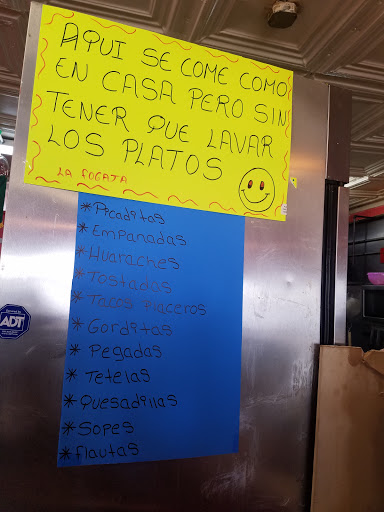 AQUI SE COME COMO
EN CASA PERO SIN
TENER QUE LAVAR
LOS PLATOS
LA FOGATA
*Picaditas
*Empanadas
*Huaraches
*Tostadas
*Tacos Placeros
*Gorditas
*Pegadas
*Tetelas
*Quesadillas
*Sopes
*flautas
ADT